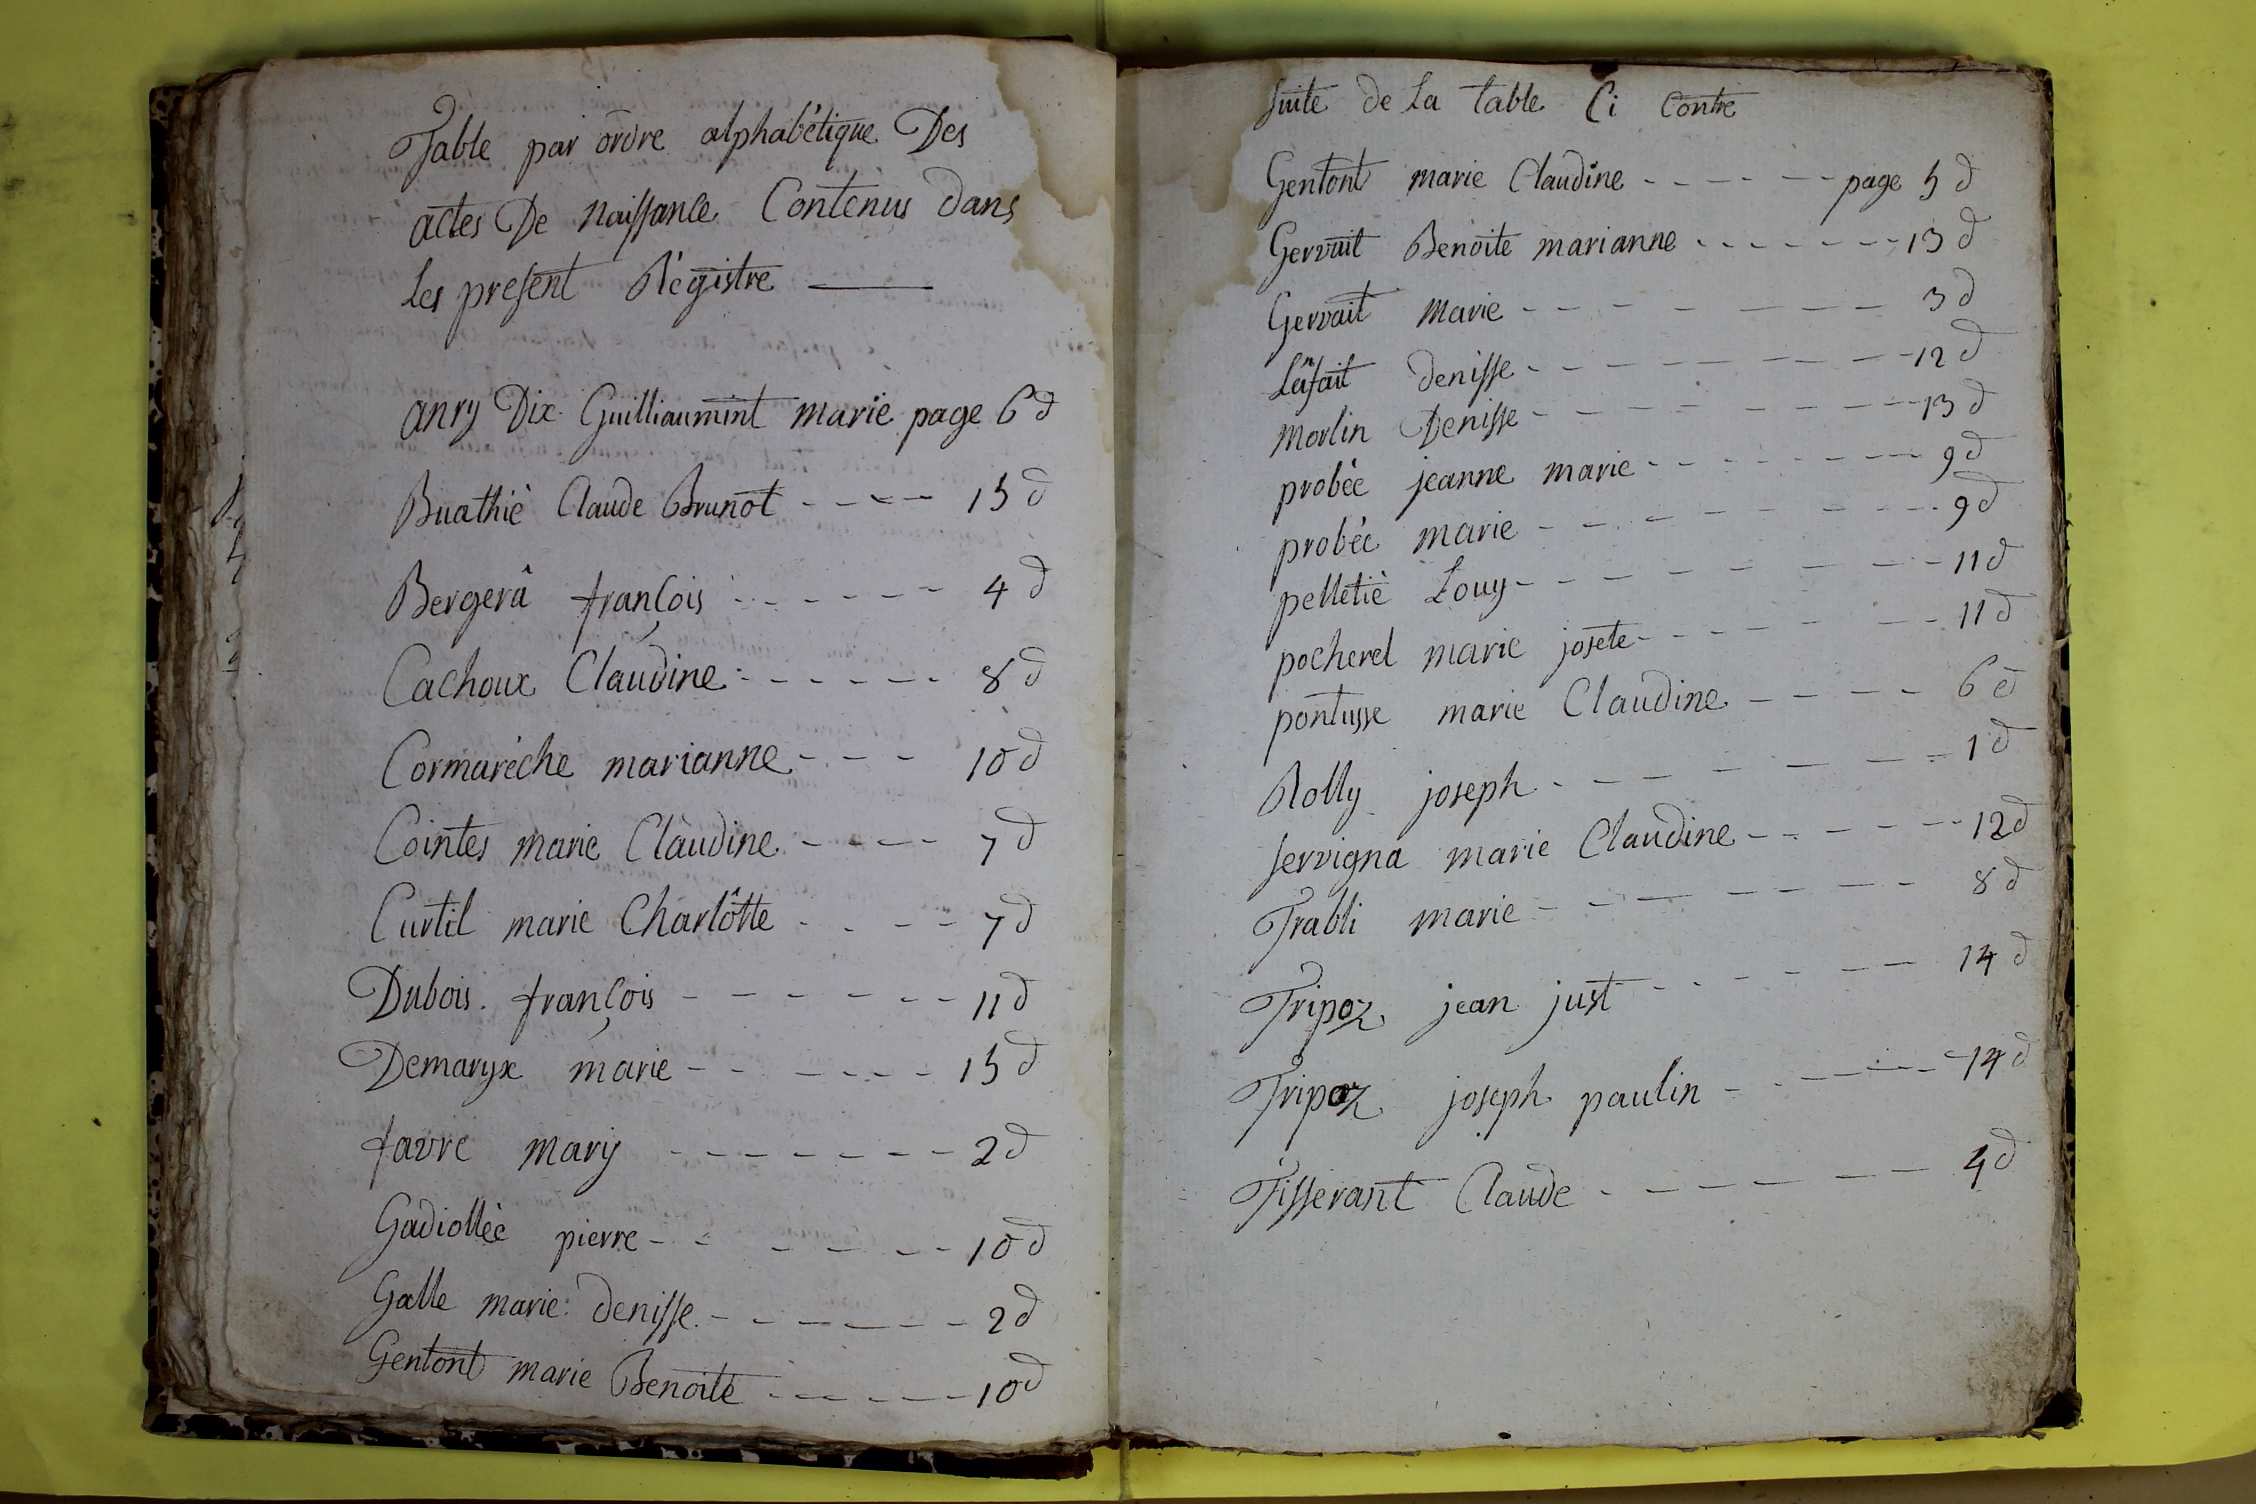 Table par ordre alphabétique Des
actes De Naissance Contenus dans
les present Régistre
anry Dix Guilliaumint marie page 6 d
Buathié Claude Brunot 15 d
Bergerâ françois 4 d
Cachoux Claudine 8 d
Cormaréche marianne 10 d
Cointes marie Claudine 7 d
Curtil marie Charlôtte 7 d
Dubois françois 11 d
Demaryx marie 15 d
favre mary 2 d
Gadiollée pierre 10 d
Galle marie denisse 2 d
Gentont marie Benoite 10 d
suite de La table Ci contre
Gentont marie Claudine page 5 d
Gervait Benoite marianne 13 d
Gervait Marie 3 d
Lanfait denisse 12 d
Morlin Denisse 13 d
probée jeanne marie 9 d
probée marie 9 d
pelletié Louy 11 d
pocherel marie josete 11 d
pontusse marie Claudine 6 d
Rolly joseph 1 d
servigna marie Claudine 12 d
Trabli marie 8 d
Tripoz jean just 14 d
Tripoz joseph paulin 14 d
Tisserant Claude 4 d